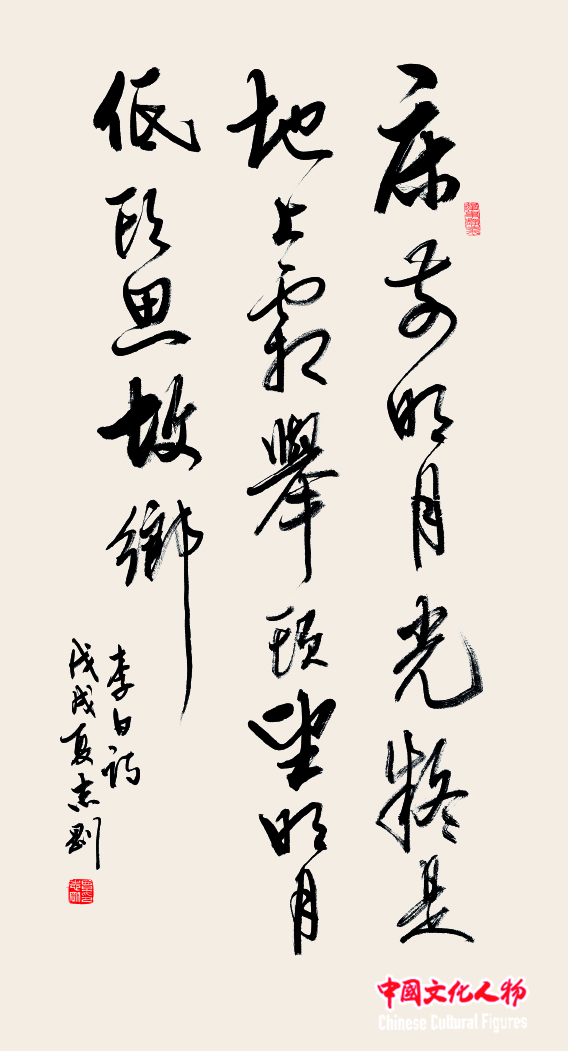 床前明月光疑是
地上霜舉頭望明月
低頭思故鄉
李白詩
戊戌夏志剛
中國文化人物
Chinese Cultural Figures